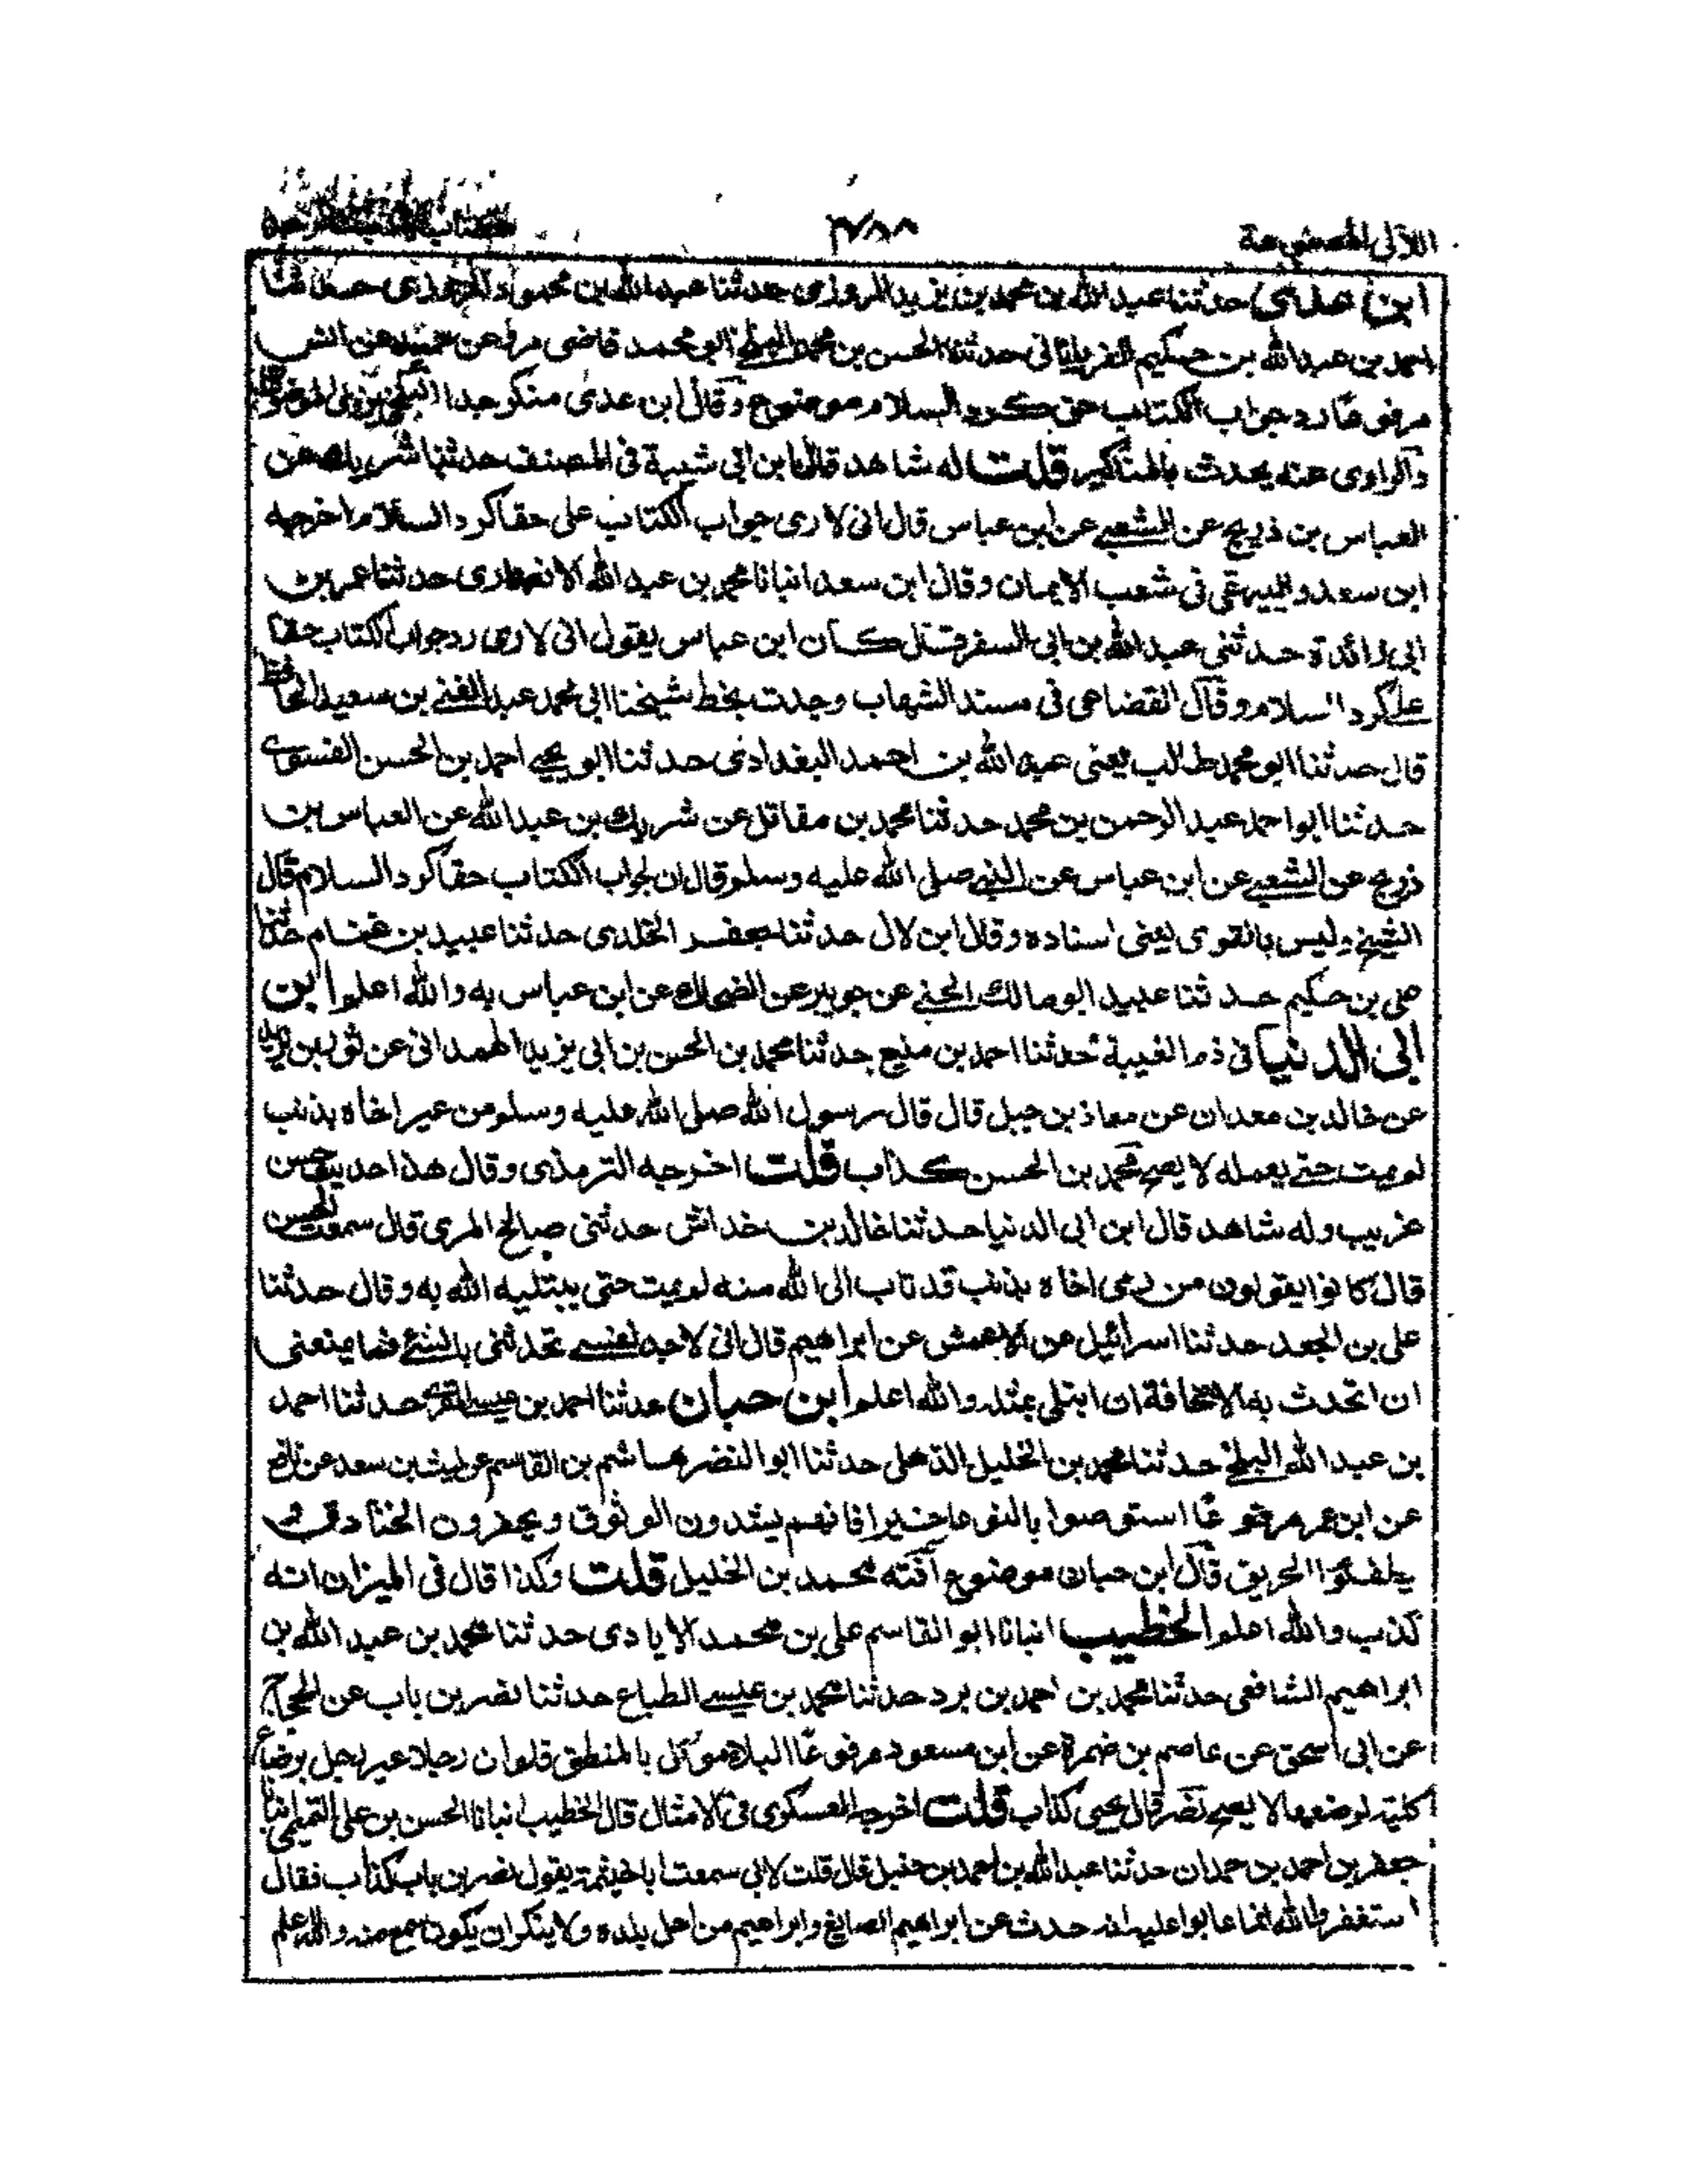 اللآلى المصنوعة
ابن عدى حدثنا عبد الله بن محمد بن يزيد المروزى حدثنا عبد الله بن محمود المروزى حدثنا
احمد بن عبد الله بن حكيم الفريانانى حدثنا الحسن بن محمد البلخے ابو محمد قاضى مرو عن حميد عن انس
مرفوعًا رد جواب الكتاب حق كرد السلام موضوع وقال ابن عدى منكر جدا
والراوى عنه يحدث بالمناكير قلت له شاهد قال ابن ابى شيبة فى المصنف حدثنا شريك عن
العباس بن ذريح عن الشعبے عن ابن عباس قال انى لارى جواب الكتاب على حقا كرد السلام اخرجه
ابن سعد والبيهقى فى شعب الايمان وقال ابن سعد انبانا محمد بن عبد الله الانصارى حدثنا عمر بن
ابى زائدة حدثنى عبد الله بن ابى السفر قال كان ابن عباس يقول انى لارى رد جواب الكتاب حقا
على كرد السلام وقال القضاعى فى مسند الشهاب وجدت بخط شيخنا ابى محمد عبد الغنے بن سعيد الحافظ
قال حدثنا ابو محمد طالب يعنى عبد الله بن احمد البغدادى حدثنا ابو يحيے احمد بن الحسن الفسوى
حدثنا ابو احمد عبد الرحمن بن محمد حدثنا محمد بن مقاتل عن شريك بن عبد الله عن العباس بن
ذريح عن الشعبے عن ابن عباس عن النبے صلى الله عليه وسلم قال ان لجواب الكتاب حقا كرد السلام قال
الشيخ وليس بالقوى يعنى اسناده وقال ابن لال حدثنا جعفر الخلدى حدثنا عبيد بن غنام حدثنا
على بن حكيم حدثنا عبيد ابو مالك الجنبے عن جويبر عن الضحاك عن ابن عباس به والله اعلم ابن
ابى الدنيا فى ذم الغيبة حدثنا احمد بن منيع حدثنا محمد بن الحسن بن ابى يزيد الهمدانى عن ثور بن يزيد
عن خالد بن معدان عن معاذ بن جبل قال قال رسول الله صلى الله عليه وسلم من عير اخاه بذنب
لم يمت حتے يعمله لا يصح محمد بن الحسن كذاب قلت اخرجه الترمذى وقال هذا حديث حسن
غريب وله شاهد قال ابن ابى الدنيا حدثنا خالد بن خداش حدثنى صالح المرى قال سمعت الحسن
قال كانوا يقولون من رمى اخاه بذنب قد تاب الى الله منه لم يمت حتى يبتليه الله به وقال حدثنا
على بن الجعد حدثنا اسرائيل عن الاعمش عن ابراهيم قال انى لاجد نفسے تحدثنى بالشئ فما يمنعنى
ان اتحدث به الا مخافة ان ابتلى بمثله والله اعلم ابن حبان حدثنا احمد بن عيسے المقرى حدثنا احمد
بن عبد الله البلخے حدثنا محمد بن الخليل الذهلى حدثنا ابو النضر هاشم بن القاسم عن ليث بن سعد عن نافع
عن ابن عمر مرفوعًا استوصوا بالغوغا خيرا فانهم يسدون البوثوق ويحفرون الخنادق و
يطفئوا الحريق قال ابن حبان موضوع آفته محمد بن الخليل قلت وكذا قال فى الميزان انه
كذب والله اعلم الخطيب انبانا ابو القاسم على بن محمد الايادى حدثنا محمد بن عبد الله بن
ابراهيم الشافعى حدثنا محمد بن احمد بن برد حدثنا محمد بن عيسے الطباع حدثنا نصر بن باب عن الحجاج
عن ابى اسحق عن عاصم بن ضمرة عن ابن مسعود مرفوعًا البلاء موكل بالمنطق فلو ان رجلا عير رجل برضاع
كلبة لرضعها لا يصح نصر قال يحيى كذاب قلت اخرجه العسكرى فى الامثال قال الخطيب انبانا الحسن بن على التميمى انبانا
جعفر بن احمد بن حمدان حدثنا عبد الله بن احمد بن حنبل قال قلت لابى سمعت ابا خيثمة يقول نصر بن باب كذاب فقال
استغفر الله انما عابوا عليه انه حدث عن ابراهيم الصائغ وابراهيم من اهل بلده ولا ينكر ان يكون سمع منه والله اعلم